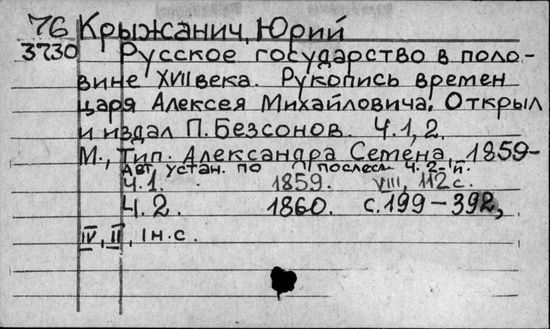 76 Крыжанич, Юрий
3730 Русское государство в поло-
вине XVII века. Рукопись времен
царя Алексея Михайловича. Открыл
и издал П. Безсонов. Ч. 1, 2.
М., Тип. Александра Семена, 1859-
Авт. устан. по послесл. ч. 2-й.
Ч. 1. 1859. VIII, 112 с.
Ч. 2. 1860. с. 199-392,
IV, II, 1 н. с.